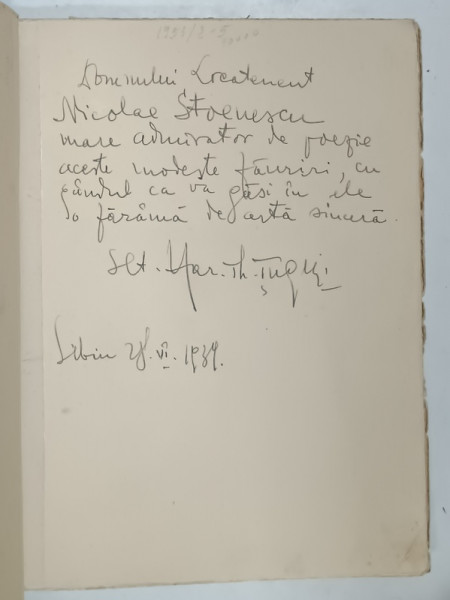 Domnului Locotenent
Nicolae Stoenescu
mare admirator de poezie
aceste modeste făuriri, cu
gândul ca va găsi în ele
o fărâmă de artă sinceră.
Slt.
Sibiu 28.VI.1939.